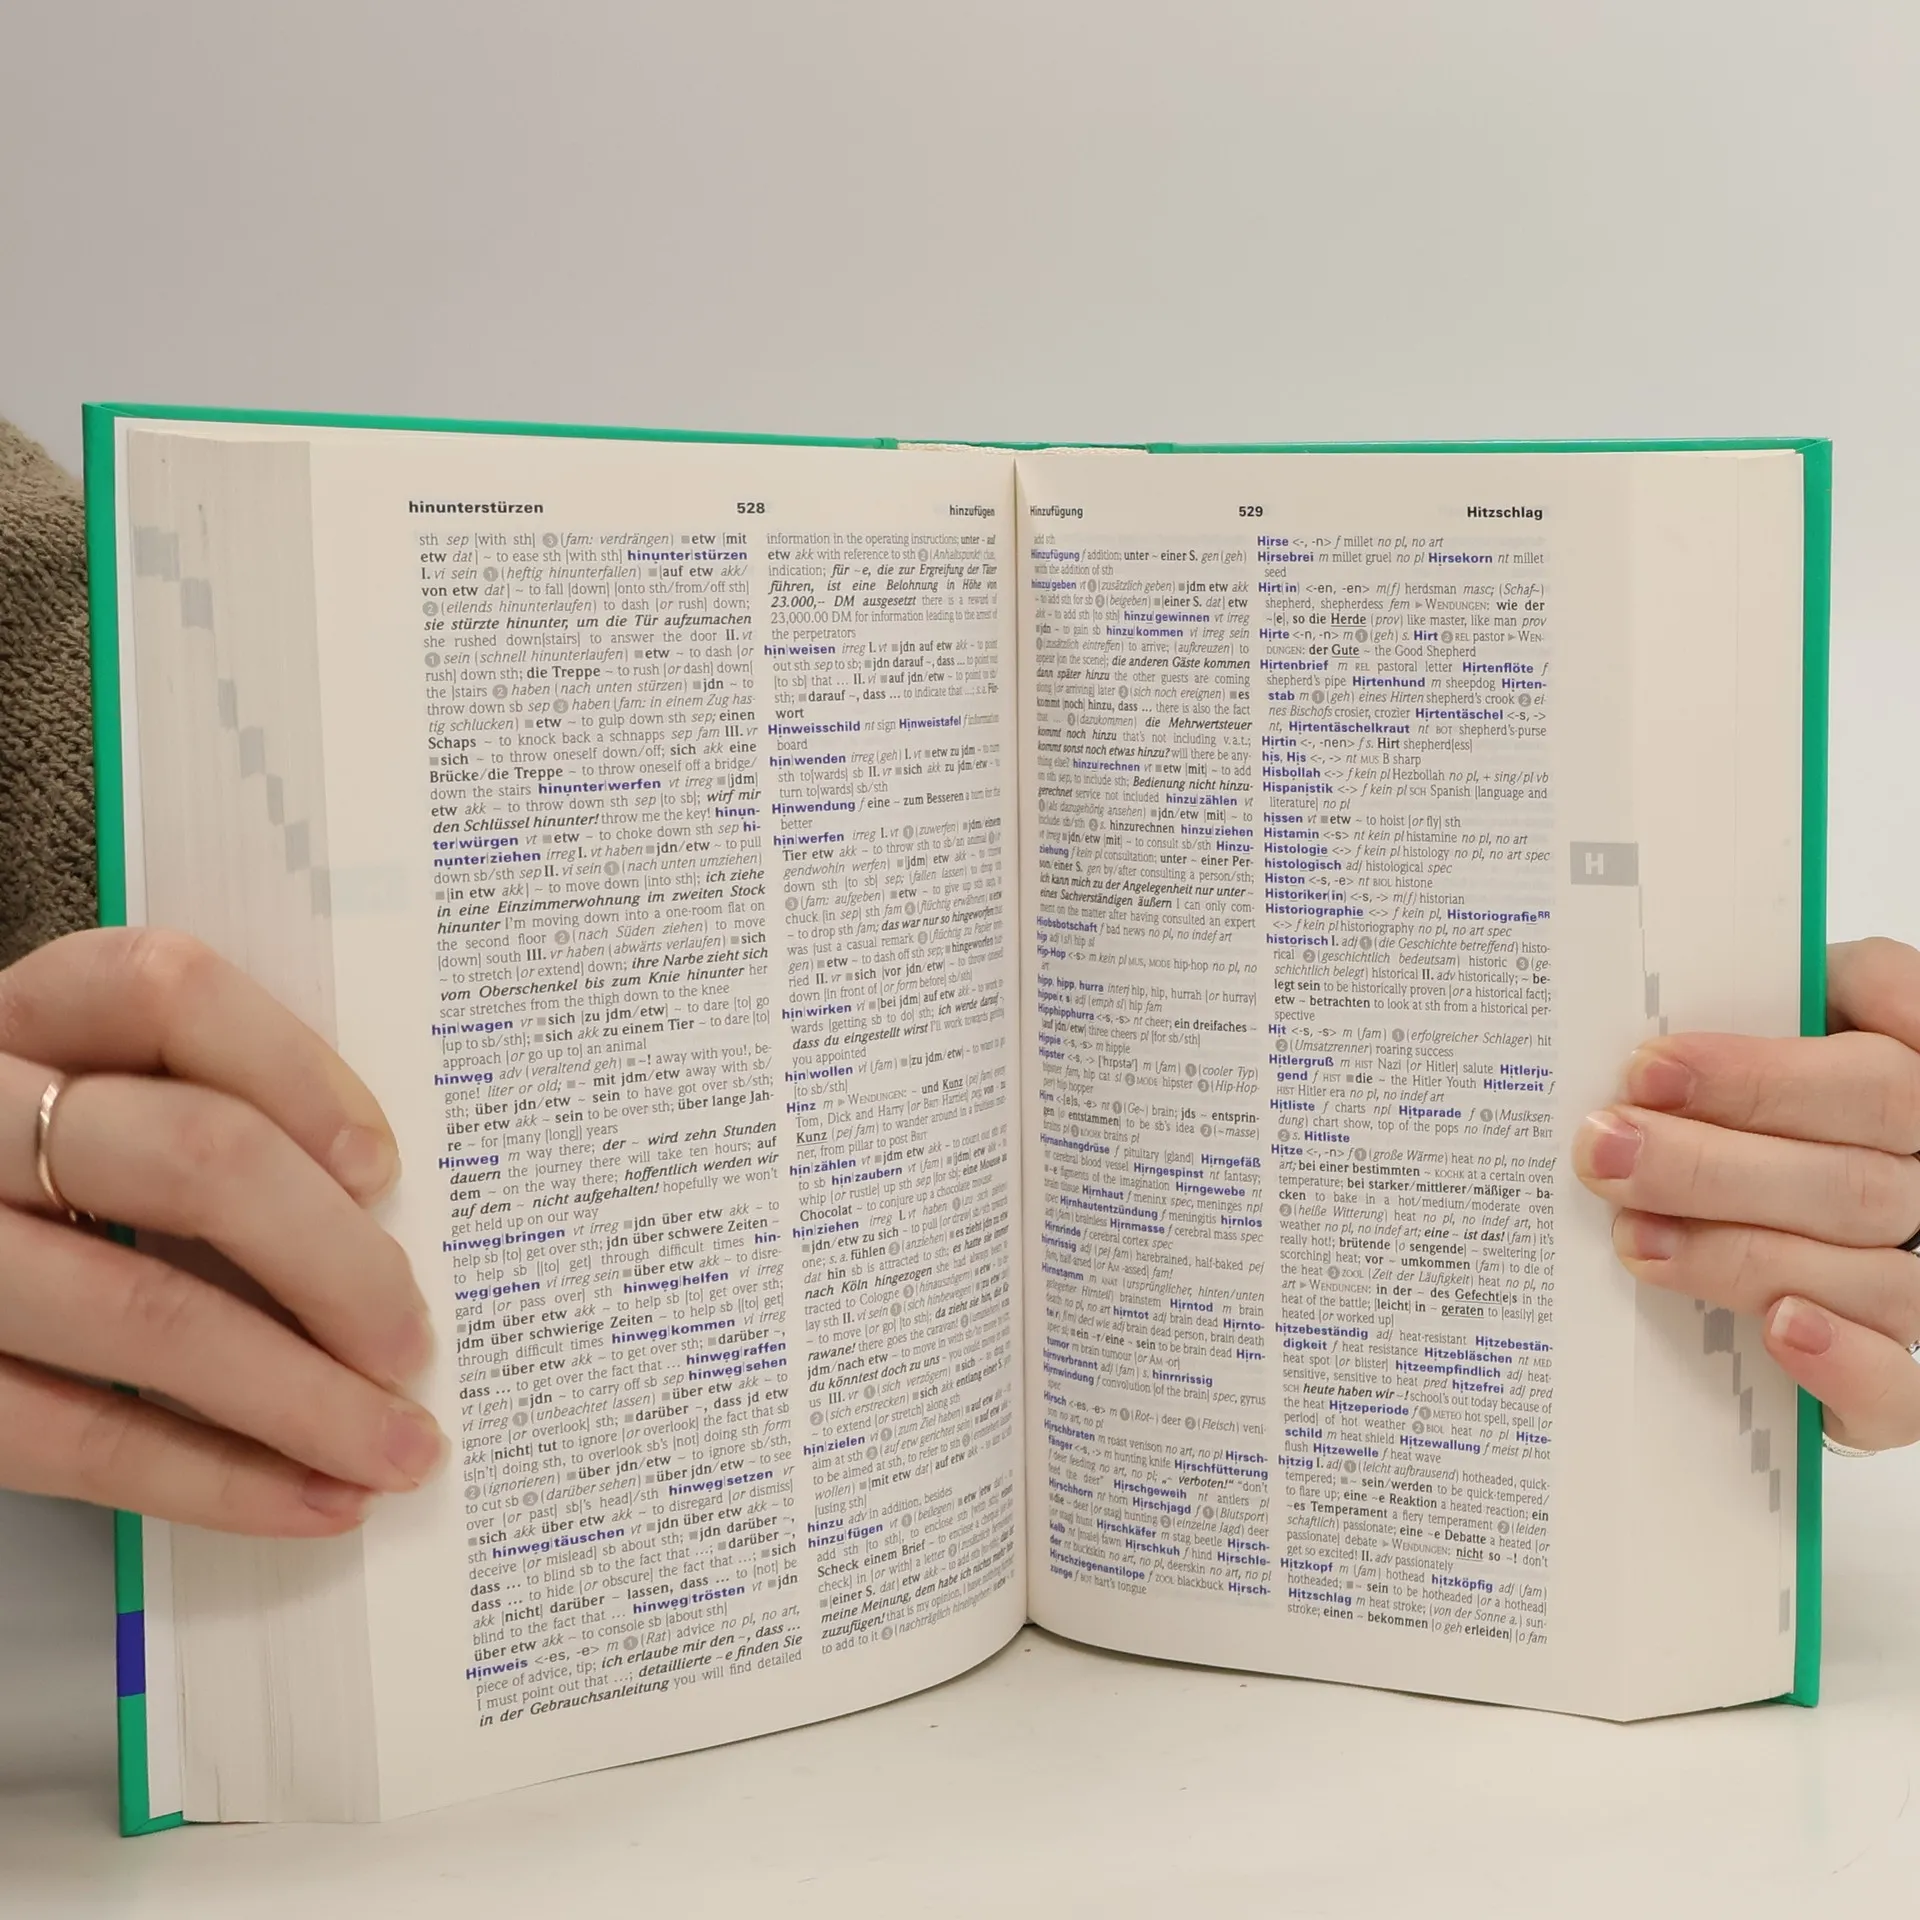 hinunterstürzen 528 hinzufügen
sth sep |with sth| ③ (fam: verdrängen) ■etw |mit
etw dat| ~ to ease sth |with sth| hinunter|stürzen
I. vi sein ① (heftig hinunterfallen) ■|auf etw akk/
von etw dat| ~ to fall |down| |onto sth/from/off sth|
② (eilends hinunterlaufen) to dash |or rush| down;
sie stürzte hinunter, um die Tür aufzumachen
she rushed down|stairs| to answer the door II. vt
① sein (schnell hinunterlaufen) ■etw ~ to dash |or
rush| down sth; die Treppe ~ to rush |or dash| down|
the |stairs ② haben (nach unten stürzen) ■jdn ~ to
throw down sb sep ③ haben (fam: in einem Zug has-
tig schlucken) ■etw ~ to gulp down sth sep; einen
Schaps ~ to knock back a schnapps sep fam III. vr
■sich ~ to throw oneself down/off; sich akk eine
Brücke/die Treppe ~ to throw oneself off a bridge/
down the stairs hinunter|werfen vt irreg ■|jdm|
etw akk ~ to throw down sth sep |to sb|; wirf mir
den Schlüssel hinunter! throw me the key! hinun-
ter|würgen vt ■etw ~ to choke down sth sep hi-
nunter|ziehen irreg I. vt haben ■jdn/etw ~ to pull
down sb/sth sep II. vi sein ① (nach unten umziehen)
■|in etw akk| ~ to move down |into sth|; ich ziehe
in eine Einzimmerwohnung im zweiten Stock
hinunter I'm moving down into a one-room flat on
the second floor ② (nach Süden ziehen) to move
|down| south III. vr haben (abwärts verlaufen) ■sich
~ to stretch |or extend| down; ihre Narbe zieht sich
vom Oberschenkel bis zum Knie hinunter her
scar stretches from the thigh down to the knee
hin|wagen vr ■sich |zu jdm/etw| ~ to dare |to| go
|up to sb/sth|; ■sich akk zu einem Tier ~ to dare |to|
approach |or go up to| an animal
hinweg adv (veraltend geh) ■~! away with you!, be-
gone! liter or old; ■~ mit jdm/etw away with sb/
sth; über jdn/etw ~ sein to have got over sb/sth;
über etw akk ~ sein to be over sth; über lange Jah-
re ~ for |many (long)| years
Hinweg m way there; der ~ wird zehn Stunden
dauern the journey there will take ten hours; auf
dem ~ on the way there; hoffentlich werden wir
auf dem ~ nicht aufgehalten! hopefully we won't
get held up on our way
hinweg|bringen vt irreg ■jdn über etw akk ~ to
help sb |to| get over sth; jdn über schwere Zeiten ~
to help sb ||to| get| through difficult times hin-
weg|gehen vi irreg sein ■über etw akk ~ to disre-
gard |or pass over| sth hinweg|helfen vi irreg
■jdm über etw akk ~ to help sb |to| get over sth;
jdm über schwierige Zeiten ~ to help sb ||to| get|
through difficult times hinweg|kommen vi irreg
sein ■über etw akk ~ to get over sth; ■darüber ~,
dass ... to get over the fact that ... hinweg|raffen
vt (geh) ■jdn ~ to carry off sb sep hinweg|sehen
vi irreg ① (unbeachtet lassen) ■über etw akk ~ to
ignore |or overlook| sth; ■darüber ~, dass jd etw
akk |nicht| tut to ignore |or overlook| the fact that sb
is|n't| doing sth, to overlook sb's |not| doing sth form
② (ignorieren) ■über jdn/etw ~ to ignore sb/sth,
to cut sb ③ (darüber sehen) ■über jdn/etw ~ to see
over |or past| sb|'s head|/sth hinweg|setzen vr
■sich akk über etw akk ~ to disregard |or dismiss|
sth hinweg|täuschen vt ■jdn über etw akk ~ to
deceive |or mislead| sb about sth; ■jdn darüber ~,
dass ... to blind sb to the fact that ...; ■darüber ~,
dass ... to hide |or obscure| the fact that ...; ■sich
akk |nicht| darüber ~ lassen, dass ... to |not| be
blind to the fact that ... hinweg|trösten vt ■jdn
über etw akk ~ to console sb |about sth|
Hinweis <-es, -e> m ① (Rat) advice no pl, no art,
piece of advice, tip; ich erlaube mir den ~, dass ...
I must point out that ...; detaillierte ~e finden Sie
in der Gebrauchsanleitung you will find detailed
information in the operating instructions; unter ~ auf
etw akk with reference to sth ② (Anhaltspunkt) clue,
indication; für ~e, die zur Ergreifung der Täter
führen, ist eine Belohnung in Höhe von
23.000,– DM ausgesetzt there is a reward of
23,000.00 DM for information leading to the arrest of
the perpetrators
hin|weisen irreg I. vt ■jdn auf etw akk ~ to point
out sth sep to sb; ■jdn darauf ~, dass ... to point out
|to sb| that ... II. vi ■auf jdn/etw ~ to point to sb/
sth; ■darauf ~, dass ... to indicate that ...; s.a. Für-
wort
Hinweisschild nt sign Hinweistafel f information
board
hin|wenden irreg (geh) I. vt ■etw zu jdm ~ to turn
sth to|wards| sb II. vr ■sich akk zu jdm/etw ~ to
turn to|wards| sb/sth
Hinwendung f eine ~ zum Besseren a turn for the
better
hin|werfen irreg I. vt ① (zuwerfen) ■jdm/einem
Tier etw akk ~ to throw sth to sb/an animal ②
gendwohin werfen) ■|jdm| etw akk ~ to throw
down sth |to sb| sep; (fallen lassen) to drop sth
③ (fam: aufgeben) ■etw ~ to give up sth sep, to
chuck |in sep| sth fam ④ (flüchtig erwähnen) ■etw
~ to drop sth fam; das war nur so hingeworfen that
was just a casual remark ⑤ (flüchtig zu Papier brin-
gen) ■etw ~ to dash off sth sep; ■hingeworfen hur-
ried II. vr ■sich |vor jdn/etw| ~ to throw oneself
down |in front of |or form before| sb/sth|
hin|wirken vi ■|bei jdm| auf etw akk ~ to work to-
wards |getting sb to do| sth; ich werde darauf ~,
dass du eingestellt wirst I'll work towards getting
you appointed
hin|wollen vi (fam) ■|zu jdm/etw| ~ to want to go
|to sb/sth|
Hinz m ▶ WENDUNGEN: ~ und Kunz (pej fam) every
Tom, Dick and Harry |or BRIT Harriet| pej; von ~ zu
Kunz (pej fam) to wander around in a fruitless man-
ner, from pillar to post BRIT
hin|zählen vt ■jdm etw akk ~ to count out sth sep
to sb hin|zaubern vt (fam) ■|jdm| etw akk ~ to
whip |or rustle| up sth sep |for sb|; eine Mousse au
Chocolat ~ to conjure up a chocolate mousse
hin|ziehen irreg I. vt haben ① (zu sich ziehen)
■jdn/etw zu sich ~ to pull |or draw| sb/sth towards
one; s. a. fühlen ② (anziehen) ■es zieht jdn zu etw
dat hin sb is attracted to sth; es hatte sie immer
nach Köln hingezogen she had always been at-
tracted to Cologne ③ (hinauszögern) ■etw ~ to de-
lay sth II. vi sein ① (sich hinbewegen) ■zu etw dat
~ to move |or go| |to sth|; da zieht sie hin, die Ka-
rawane! there goes the caravan! ②
jdm/nach etw ~ to move in with sb/in
du könntest doch zu uns ~ you could move in with
us III. vr ① (sich verzögern) ■sich ~ to drag on
② (sich erstrecken) ■sich akk entlang einer S. gen
~ to extend |or stretch| along sth
hin|zielen vi ① (zum Ziel haben) ■auf etw akk ~ to
aim at sth ② (auf etw gerichtet sein) ■auf etw akk ~
to be aimed at sth, to refer to sth ③
wollen) ■|mit etw dat| auf etw akk ~
|using sth|
hinzu adv in addition, besides
hinzu|fügen vt ① (beilegen) ■etw |etw dat| ~ to
add sth |to sth|, to enclose sth |with sth|; einen
Scheck einem Brief ~ to enclose a cheque
check| in |or with| a letter ②
■|einer S. dat| etw akk ~ to add sth |to sth|;
meine Meinung, dem habe ich nichts mehr hin-
zuzufügen! that is my opinion, I have nothing further
to add to it ③ (nachträglich hineingeben)
Hinzufügung 529 Hitzschlag
add sth
Hinzufügung f addition; unter ~ einer S. gen (geh)
with the addition of sth
hinzu|geben vt ① (zusätzlich geben) ■jdm etw akk
~ to add sth for sb ② (beigeben) ■|einer S. dat| etw
akk ~ to add sth |to sth| hinzu|gewinnen vt irreg
■jdn ~ to gain sb hinzu|kommen vi irreg sein
① (zusätzlich eintreffen) to arrive; (aufkreuzen) to
appear |on the scene|; die anderen Gäste kommen
dann später hinzu the other guests are coming
along |or arriving| later ② (sich noch ereignen) ■es
kommt |noch| hinzu, dass ... there is also the fact
that ... ③ (dazukommen) die Mehrwertsteuer
kommt noch hinzu that's not including v.a.t.;
kommt sonst noch etwas hinzu? will there be any-
thing else? hinzu|rechnen vt ■etw |mit| ~ to add
on sth sep, to include sth; Bedienung nicht hinzu-
gerechnet service not included hinzu|zählen vt
① (als dazugehörig ansehen) ■jdn/etw |mit| ~ to
include sb/sth ② s. hinzurechnen hinzu|ziehen
vt irreg ■jdn/etw |mit| ~ to consult sb/sth Hinzu-
ziehung f kein pl consultation; unter ~ einer Per-
son/einer S. gen by/after consulting a person/sth;
ich kann mich zu der Angelegenheit nur unter ~
eines Sachverständigen äußern I can only com-
ment on the matter after having consulted an expert
Hiobsbotschaft f bad news no pl, no indef art
hip adj (sl) hip sl
Hip-Hop <-s> m kein pl MUS, MODE hip-hop no pl, no
art
hipp, hipp, hurra interj hip, hip, hurrah |or hurray|
hippe(r, s) adj (emph sl) hip fam
Hipphipphurra <-s, -s> nt cheer; ein dreifaches ~
|auf jdn/etw| three cheers pl |for sb/sth|
Hippie <-s, -s> m hippie
Hipster <-s, -> ['hɪpstɐ] m (fam) ① (cooler Typ)
hipster fam, hip cat sl ② MODE hipster ③ (Hip-Hop-
per) hip hopper
Hirn <-[e]s, -e> nt ① (Ge~) brain; jds ~ entsprin-
gen |o entstammen| to be sb's idea ② (~masse)
brains pl ③ KOCHK brains pl
Hirnanhangdrüse f pituitary |gland| Hirngefäß
nt cerebral blood vessel Hirngespinst nt fantasy;
■~e figments of the imagination Hirngewebe nt
brain tissue Hirnhaut f meninx spec, meninges npl
spec Hirnhautentzündung f meningitis hirnlos
adj (fam) brainless Hirnmasse f cerebral mass spec
Hirnrinde f cerebral cortex spec
hirnrissig adj (pej fam) harebrained, half-baked pej
fam, half-arsed |or AM -assed| fam!
Hirnstamm m ANAT (ursprünglicher, hinten/unten
gelegener Hirnteil) brainstem Hirntod m brain
death no pl, no art hirntot adj brain dead Hirnto-
te(r) f(m) decl wie adj brain dead person, brain death
spec sl; ■ein ~r/eine ~ sein to be brain dead Hirn-
tumor m brain tumour |or AM -or|
hirnverbrannt adj (fam) s. hirnrissig
Hirnwindung f convolution |of the brain| spec, gyrus
spec
Hirsch <-es, -e> m ① (Rot~) deer ② (Fleisch) veni-
son no art, no pl
Hirschbraten m roast venison no art, no pl Hirsch-
fänger <-s, -> m hunting knife Hirschfütterung
f deer feeding no art, no pl; „~ verboten!“ “don't
feed the deer” Hirschgeweih nt antlers pl
Hirschhorn nt horn Hirschjagd f ① (Blutsport)
■die ~ deer |or stag| hunting ② (einzelne Jagd) deer
|or stag| hunt Hirschkäfer m stag beetle Hirsch-
kalb nt |male| fawn Hirschkuh f hind Hirschle-
der nt buckskin no art, no pl, deerskin no art, no pl
Hirschziegenantilope f ZOOL blackbuck Hirsch-
zunge f BOT hart's tongue
Hirse <-, -n> f millet no pl, no art
Hirsebrei m millet gruel no pl Hirsekorn nt millet
seed
Hirt(in) <-en, -en> m(f) herdsman masc; (Schaf~)
shepherd, shepherdess fem ▶ WENDUNGEN: wie der
~|e|, so die Herde (prov) like master, like man prov
Hirte <-n, -n> m ① (geh) s. Hirt ② REL pastor ▶ WEN-
DUNGEN: der Gute ~ the Good Shepherd
Hirtenbrief m REL pastoral letter Hirtenflöte f
shepherd's pipe Hirtenhund m sheepdog Hirten-
stab m ① (geh) eines Hirten shepherd's crook ② ei-
nes Bischofs crosier, crozier Hirtentäschel <-s, ->
nt, Hirtentäschelkraut nt BOT shepherd's-purse
Hirtin <-, -nen> f s. Hirt shepherd|ess|
his, His <-, -> nt MUS B sharp
Hisbollah <-> f kein pl Hezbollah no pl, + sing/pl vb
Hispanistik <-> f kein pl SCH Spanish |language and
literature| no pl
hissen vt ■etw ~ to hoist |or fly| sth
Histamin <-s> nt kein pl histamine no pl, no art
Histologie <-> f kein pl histology no pl, no art spec
histologisch adj histological spec
Histon <-s, -e> nt BIOL histone
Historiker(in) <-s, -> m(f) historian
Historiographie <-> f kein pl, HistoriografieRR
<-> f kein pl historiography no pl, no art spec
historisch I. adj ① (die Geschichte betreffend) histo-
rical ② (geschichtlich bedeutsam) historic ③ (ge-
schichtlich belegt) historical II. adv historically; ~ be-
legt sein to be historically proven |or a historical fact|;
etw ~ betrachten to look at sth from a historical per-
spective
Hit <-s, -s> m (fam) ① (erfolgreicher Schlager) hit
② (Umsatzrenner) roaring success
Hitlergruß m HIST Nazi |or Hitler| salute Hitlerju-
gend f HIST ■die ~ the Hitler Youth Hitlerzeit f
HIST Hitler era no pl, no indef art
Hitliste f charts npl Hitparade f ① (Musiksen-
dung) chart show, top of the pops no indef art BRIT
② s. Hitliste
Hitze <-, -n> f ① (große Wärme) heat no pl, no indef
art; bei einer bestimmten ~ KOCHK at a certain oven
temperature; bei starker/mittlerer/mäßiger ~ ba-
cken to bake in a hot/medium/moderate oven
② (heiße Witterung) heat no pl, no indef art, hot
weather no pl, no indef art; eine ~ ist das! (fam) it's
really hot!; brütende |o sengende| ~ sweltering |or
scorching| heat; vor ~ umkommen (fam) to die of
the heat ③ ZOOL (Zeit der Läufigkeit) heat no pl, no
art ▶ WENDUNGEN: in der ~ des Gefecht|e|s in the
heat of the battle; |leicht| in ~ geraten to |easily| get
heated |or worked up|
hitzebeständig adj heat-resistant Hitzebestän-
digkeit f heat resistance Hitzebläschen nt MED
heat spot |or blister| hitzeempfindlich adj heat-
sensitive, sensitive to heat pred hitzefrei adj pred
SCH heute haben wir ~! school's out today because of
the heat Hitzeperiode f ① METEO hot spell, spell |or
period| of hot weather ② BIOL heat no pl Hitze-
schild m heat shield Hitzewallung f meist pl hot
flush Hitzewelle f heat wave
hitzig I. adj ① (leicht aufbrausend) hotheaded, quick-
tempered; ■~ sein/werden to be quick-tempered/
to flare up; eine ~e Reaktion a heated reaction; ein
~es Temperament a fiery temperament ② (leiden
schaftlich) passionate; eine ~e Debatte a heated |or
passionate| debate ▶ WENDUNGEN: nicht so ~! don't
get so excited! II. adv passionately
Hitzkopf m (fam) hothead hitzköpfig adj (fam)
hotheaded; ■~ sein to be hotheaded |or a hothead|
Hitzschlag m heat stroke; (von der Sonne a.) sun-
stroke; einen ~ bekommen |o geh erleiden| |o fam
H